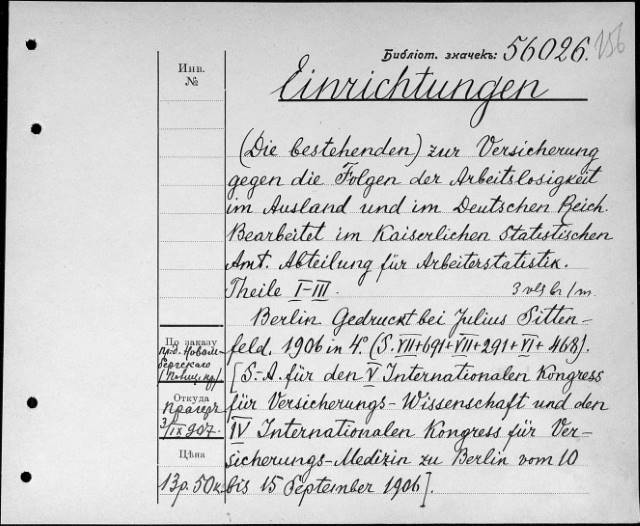 Библiот. значекъ: 56026. 156
Инв.
№
Einrichtungen
(Die bestehenden) zur Versicherung
gegen die Folgen der Arbeitslosigkeit
im Ausland und im Deutschen Reich.
Bearbeitet im Kaiserlichen Statistischen
Amt. Abteilung für Arbeiterstatistik.
Theile I–III. 3 vls br / m.
Berlin Gedruckt bei Julius Sitten-
feld. 1906 in 4º. (S. VII+691+VII+291+VI+
[S.-A. für den V Internationalen Kongress
für Versicherungs-Wissenschaft und den
IV Internationalen Kongress für Ver-
sicherungs-Medizin zu Berlin vom 10
bis 15 September 1906].
По заказу
Откуда
Прагеръ
3/IX 907.
Цѣна
13 р. 50 к.